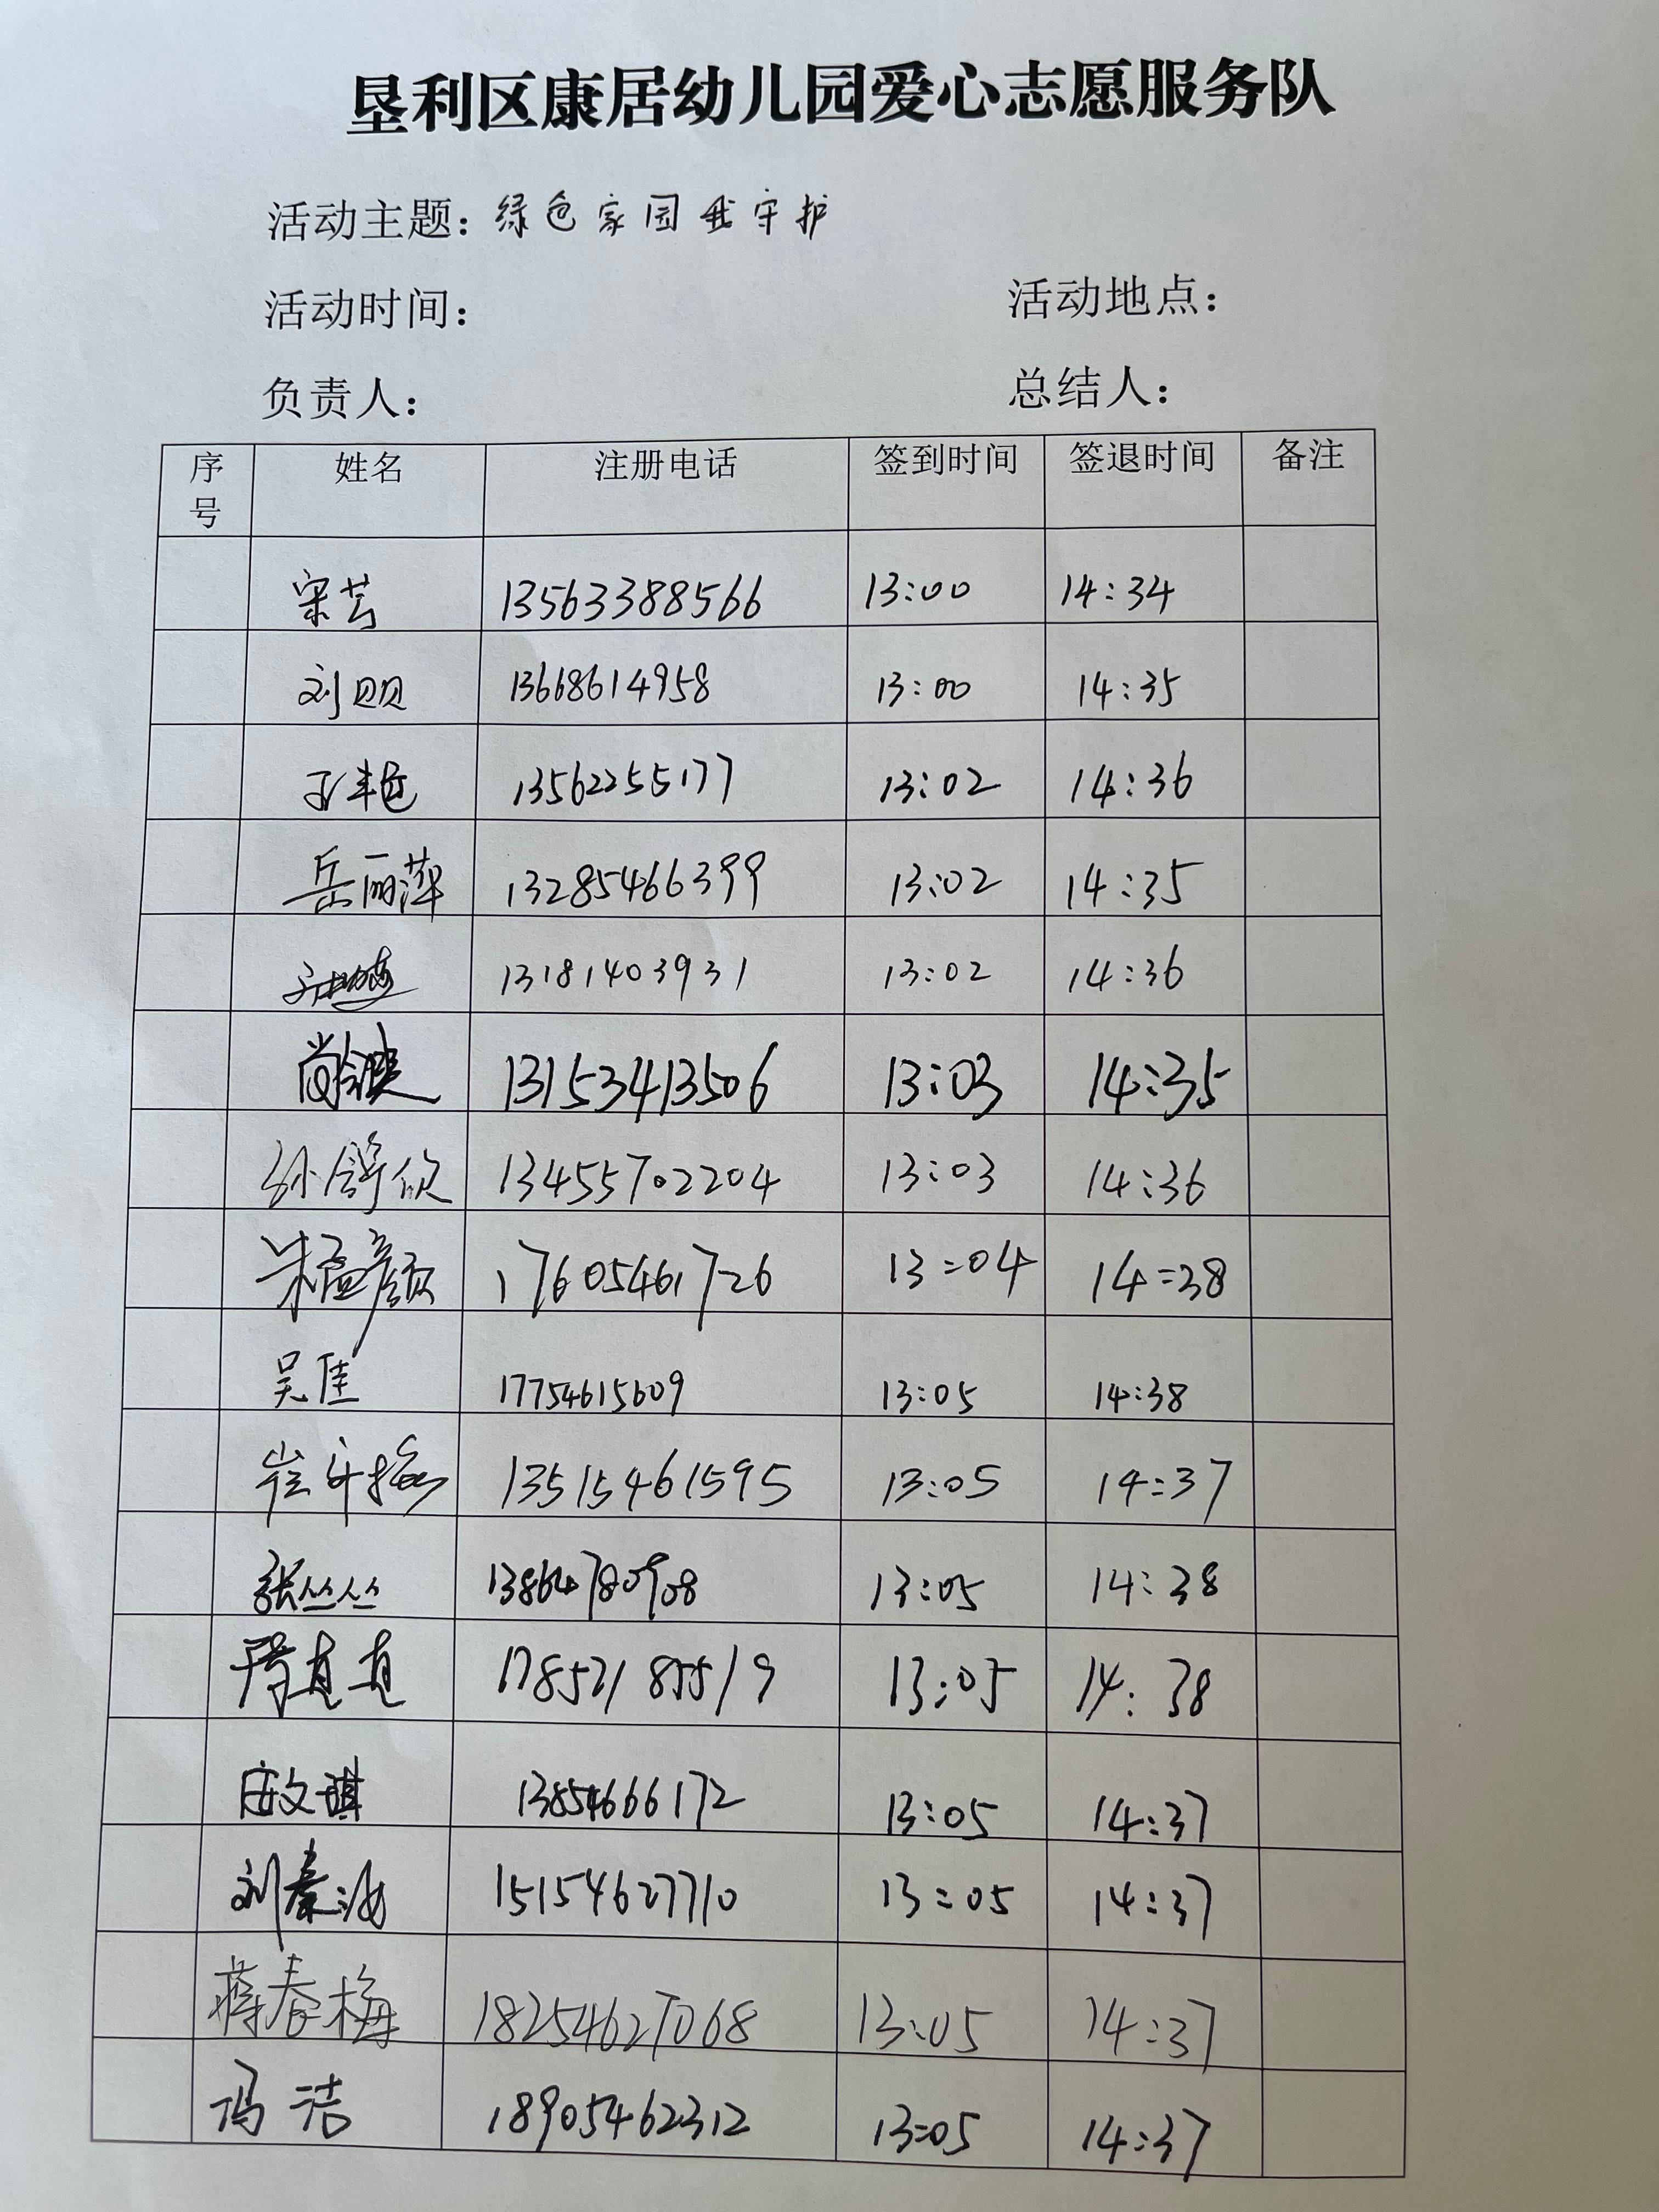 垦利区康居幼儿园爱心志愿服务队
活动主题：绿色家园我守护
活动时间： 活动地点：
负责人： 总结人：
序号 姓名 注册电话 签到时间 签退时间 备注
宋芸 13563388566 13:00 14:34
刘贝贝 13668614958 13:00 14:35
13562255177 13:02 14:36
岳丽萍 13285466399 13:02 14:35
13181403931 13:02 14:36
尚 13153413506 13:03 14:35
孙舒欣 13455702204 13:03 14:36
朱孟颜 17605461726 13:04 14:38
吴佳 17754615609 13:05 14:38
崔 梅 13515461595 13:05 14:37
张丛丛 13864780908 13:05 14:38
17852185519 13:05 14:38
庄文琪 13854666172 13:05 14:37
刘秦汝 15154627710 13:05 14:37
蒋春梅 18254627068 13:05 14:37
冯洁 18905462312 13:05 14:37